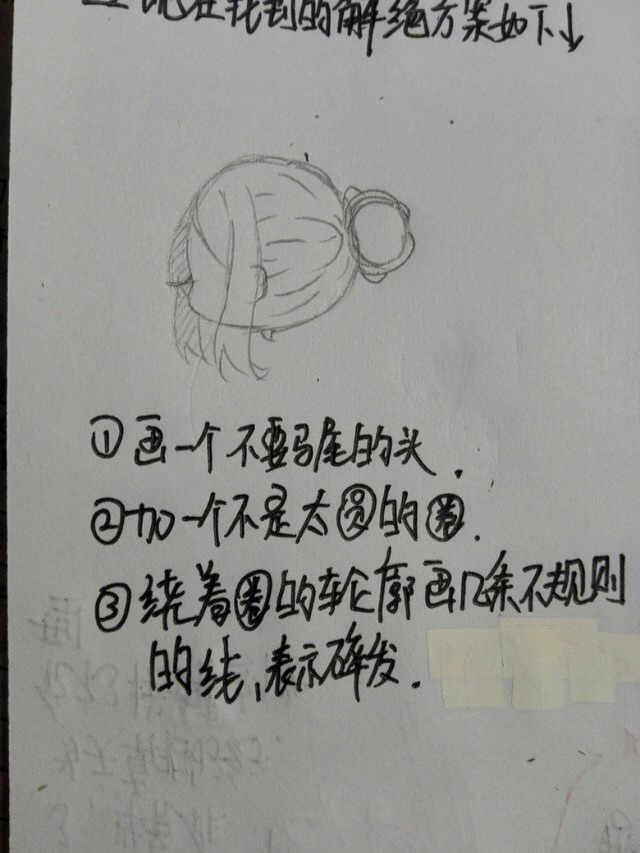 现在找到的解绝方案如下↓
①画一个不要马尾的头.
②加一个不是太圆的圈.
③绕着圈的轮廓画几条不规则
的线,表示碎发.